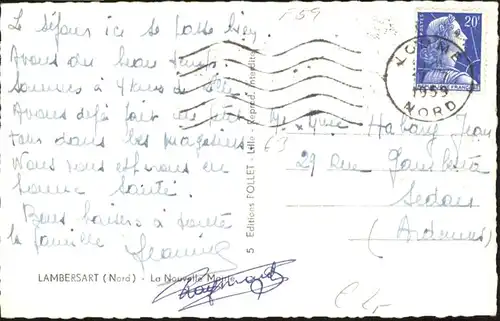 Le séjour ici se passe bien
Avons du beau temps
Sommes à 4 kms de Lille
Avons déjà fait un petit
tour dans les magasins
Nous vous espérons en
bonne santé.
Bons baisers à toute
la famille
Jeannine
Raymond
LAMBERSART (Nord) - La Nouvelle Mairie
5 Editions POLLET - Lille - Reprod. interdite
F 59
63
20F
POSTES
1959
NORD
Mr et Mme Jean
29 Rue Gambetta
Sedan
(Ardennes)